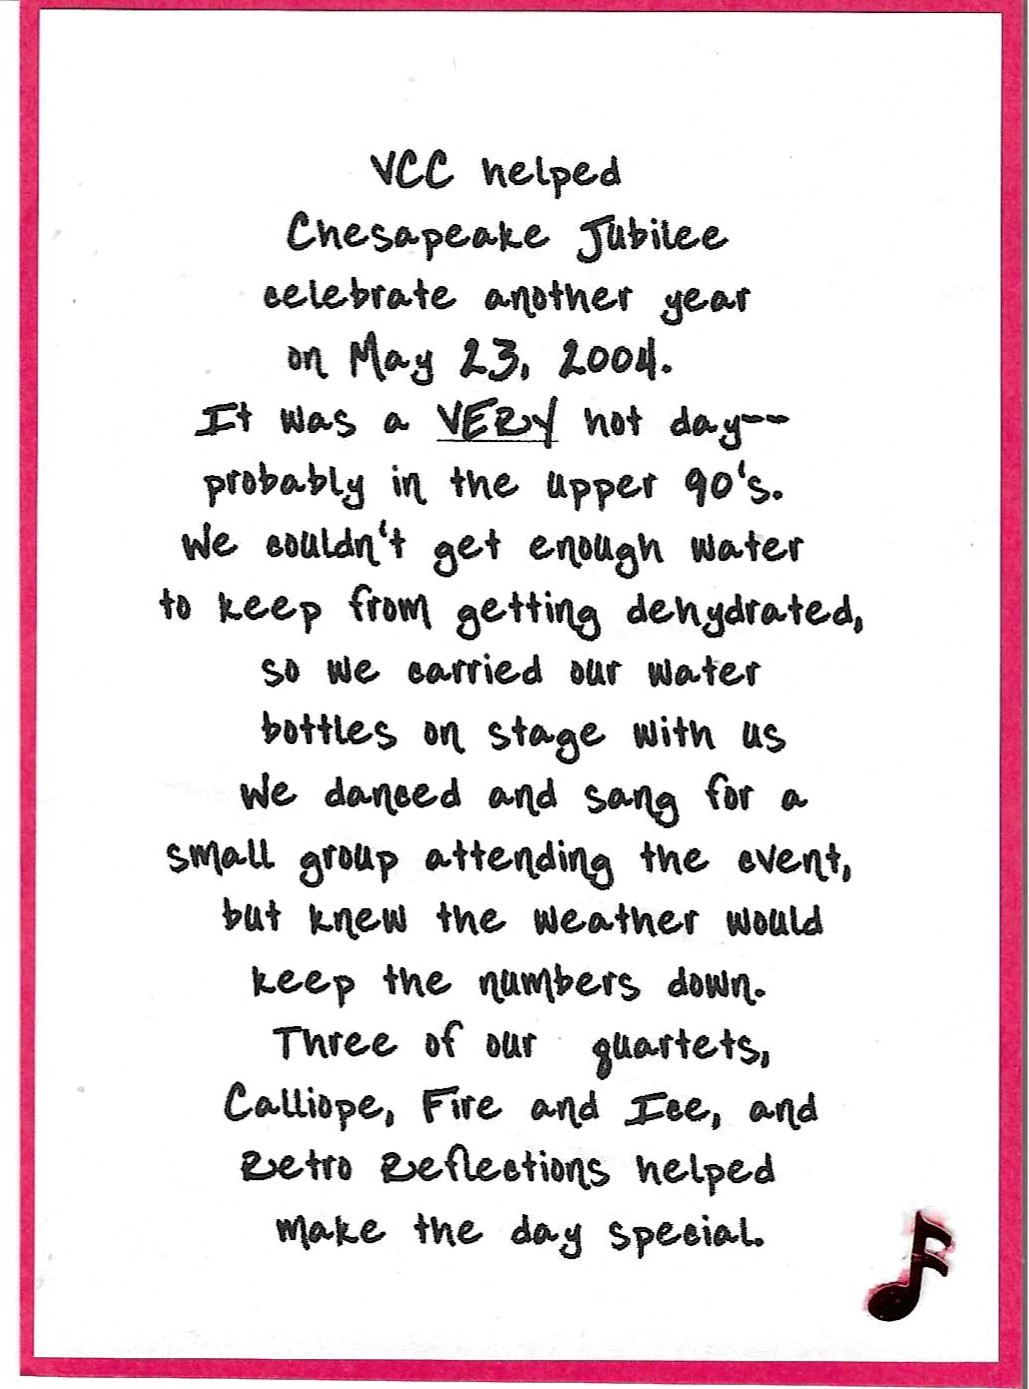 VCC helped
Chesapeake Jubilee
celebrate another year
on May 23, 2004.
It was a VERY hot day--
probably in the upper 90's.
We couldn't get enough water
to keep from getting dehydrated,
so we carried our water
bottles on stage with us
We danced and sang for a
small group attending the event,
but knew the weather would
keep the numbers down.
Three of our quartets,
Calliope, Fire and Ice, and
Retro Reflections helped
make the day special.